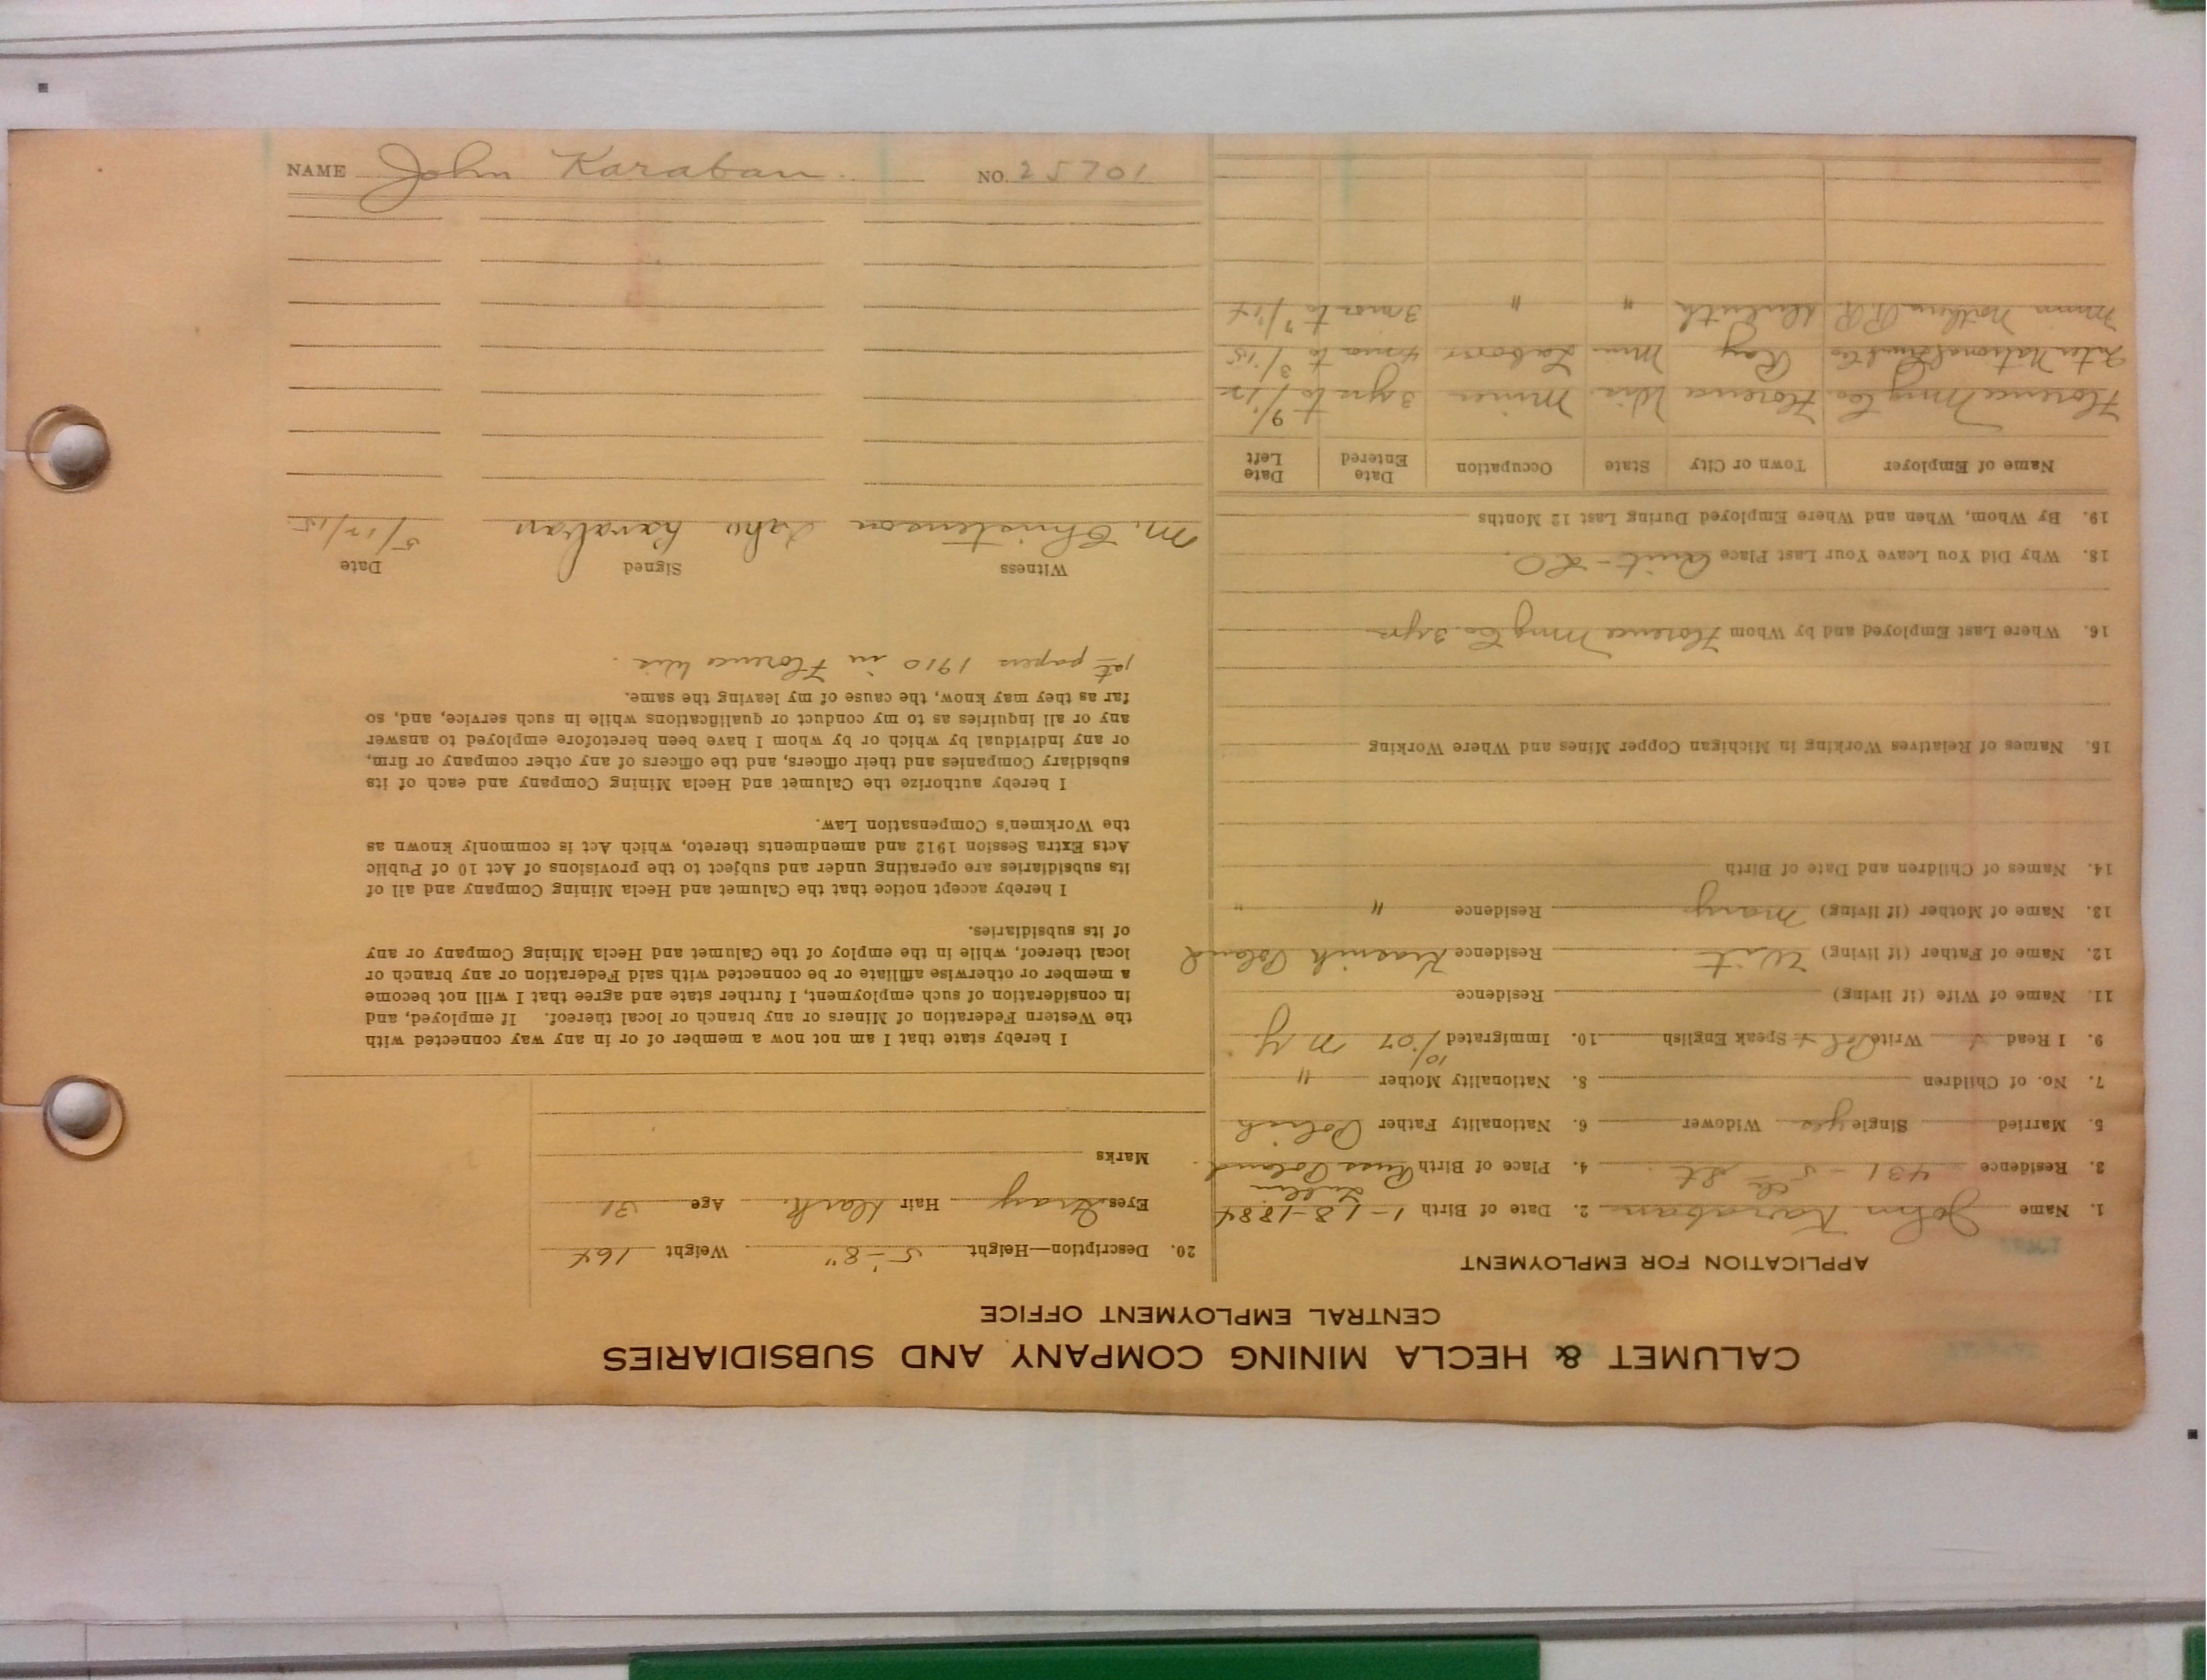 CALUMET & HECLA MINING COMPANY AND SUBSIDIARIES
CENTRAL EMPLOYMENT OFFICE
APPLICATION FOR EMPLOYMENT
1. Name John Karaban 2. Date of Birth 1-18-1884
3. Residence 431-5th St. 4. Place of Birth Russ Poland
5. Married Single yes Widower 6. Nationality Father Polish
7. No. of Children 8. Nationality Mother "
9. I Read Write Pol Speak English 10. Immigrated 10/'07 N Y
11. Name of Wife (if living) Residence
12. Name of Father (if living) Residence Poland
13. Name of Mother (if living) Mary Residence " "
14. Names of Children and Date of Birth
15. Names of Relatives Working in Michigan Copper Mines and Where Working
16. Where Last Employed and by Whom Florence Mng Co 3 yrs
18. Why Did You Leave Your Last Place Quit-
19. By Whom, When and Where Employed During Last 12 Months
Name of Employer Town or City State Occupation Date Entered Date Left
Florence Mng Co Florence Wis. Miner 3 yrs to
International Co Ray Min Laborer 4 mos to 3/'15
Minn Northern RR Duluth " " 3 mos to
20. Description—Height 5'-8" Weight 164
Eyes Gray Hair dark. Age 31
Marks
I hereby state that I am not now a member of or in any way connected with
the Western Federation of Miners or any branch or local thereof. If employed, and
in consideration of such employment, I further state and agree that I will not become
a member or otherwise affiliate or be connected with said Federation or any branch or
local thereof, while in the employ of the Calumet and Hecla Mining Company or any
of its subsidiaries.
I hereby accept notice that the Calumet and Hecla Mining Company and all of
its subsidiaries are operating under and subject to the provisions of Act 10 of Public
Acts Extra Session 1912 and amendments thereto, which Act is commonly known as
the Workmen's Compensation Law.
I hereby authorize the Calumet and Hecla Mining Company and each of its
subsidiary Companies and their officers, and the officers of any other company or firm,
or any individual by which or by whom I have been heretofore employed to answer
any or all inquiries as to my conduct or qualifications while in such service, and, so
far as they may know, the cause of my leaving the same.
1st papers 1910 in Florence Wis.
Witness Signed Date
M. Christenson Karaban 5/12/15
NAME John Karaban. NO. 25701